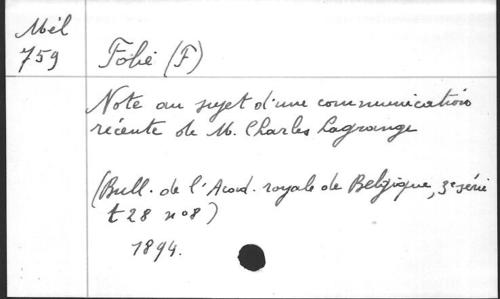 Mél
759
Folie (F)
Note au sujet d'une communication
récente de M. Charles Lagrange
(Bull. de l'Acad. royale de Belgique, 3e série
t 28 n°8)
1894.